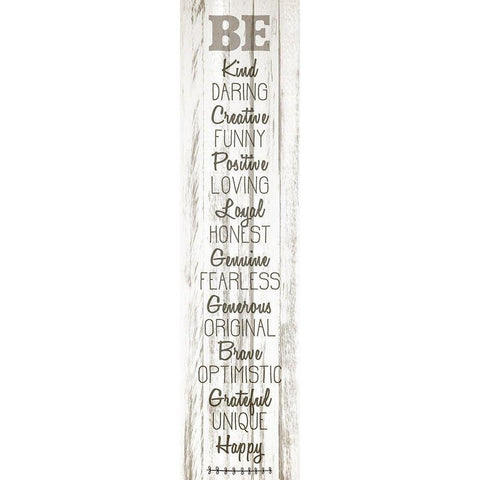 BE
Kind
DARING
Creative
FUNNY
Positive
LOVING
Loyal
HONEST
Genuine
FEARLESS
Generous
ORIGINAL
Brave
OPTIMISTIC
Grateful
UNIQUE
Happy